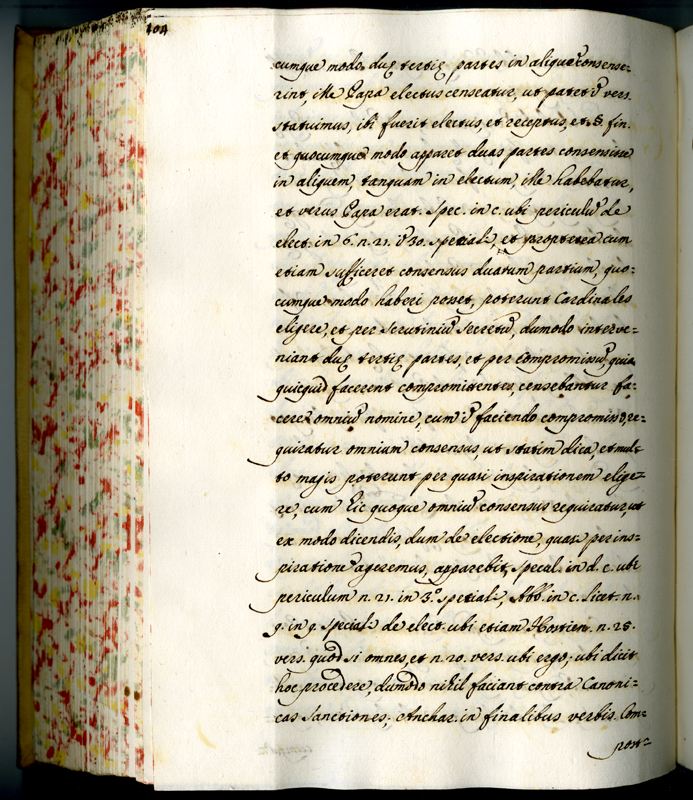 404
cumque modo, duę tertię partes in aliquē consense-
rint, ille Papa electus censeatur, ut patet ī vers.
statuimus, ibi fuerit electus, et receptus, et §. fin.
et quocumque modo apparet duas partes consensisse
in aliquem, tanquam in electum, ille habebatur,
et verus Papa erat. Spec. in c. ubi periculū de
elect. in 6. n. 21. ī 3o. spetiali, et propterea cum
etiam sufficeret consensus duarum partium, quo=
cumque modo haberi posset, poterunt Cardinales
eligere, et per Scrutiniū Secretū, dumodo interve=
niant duę tertię partes, et per compromissū, quia
quicquid facerent compromittentes, censebantur fa=
cere omniū nomine, cum ī faciendo compromisso, re=
quiratur omnium consensus, ut statim dica, et mul=
to majis poterunt per quasi inspirationem elige=
re, cum hic quoque omniū consensus requiratur, ut
ex modo dicendis, dum de electione, quasi per ins=
pirationē ageremus, apparebit, Specul. in d. c. ubi
periculum n. 21. in 3.° spetiali, Abb. in c. licet. n.
9. in 9. speciali de elect. ubi etiam Hostien. n. 28.
vers. quod si omnes, et n. 20. vers. ubi ergo; ubi dicit
hoc procedere, dumodo nihil faciant contra Canoni=
cas Sanctiones; Anchar. in finalibus verbis. Com=